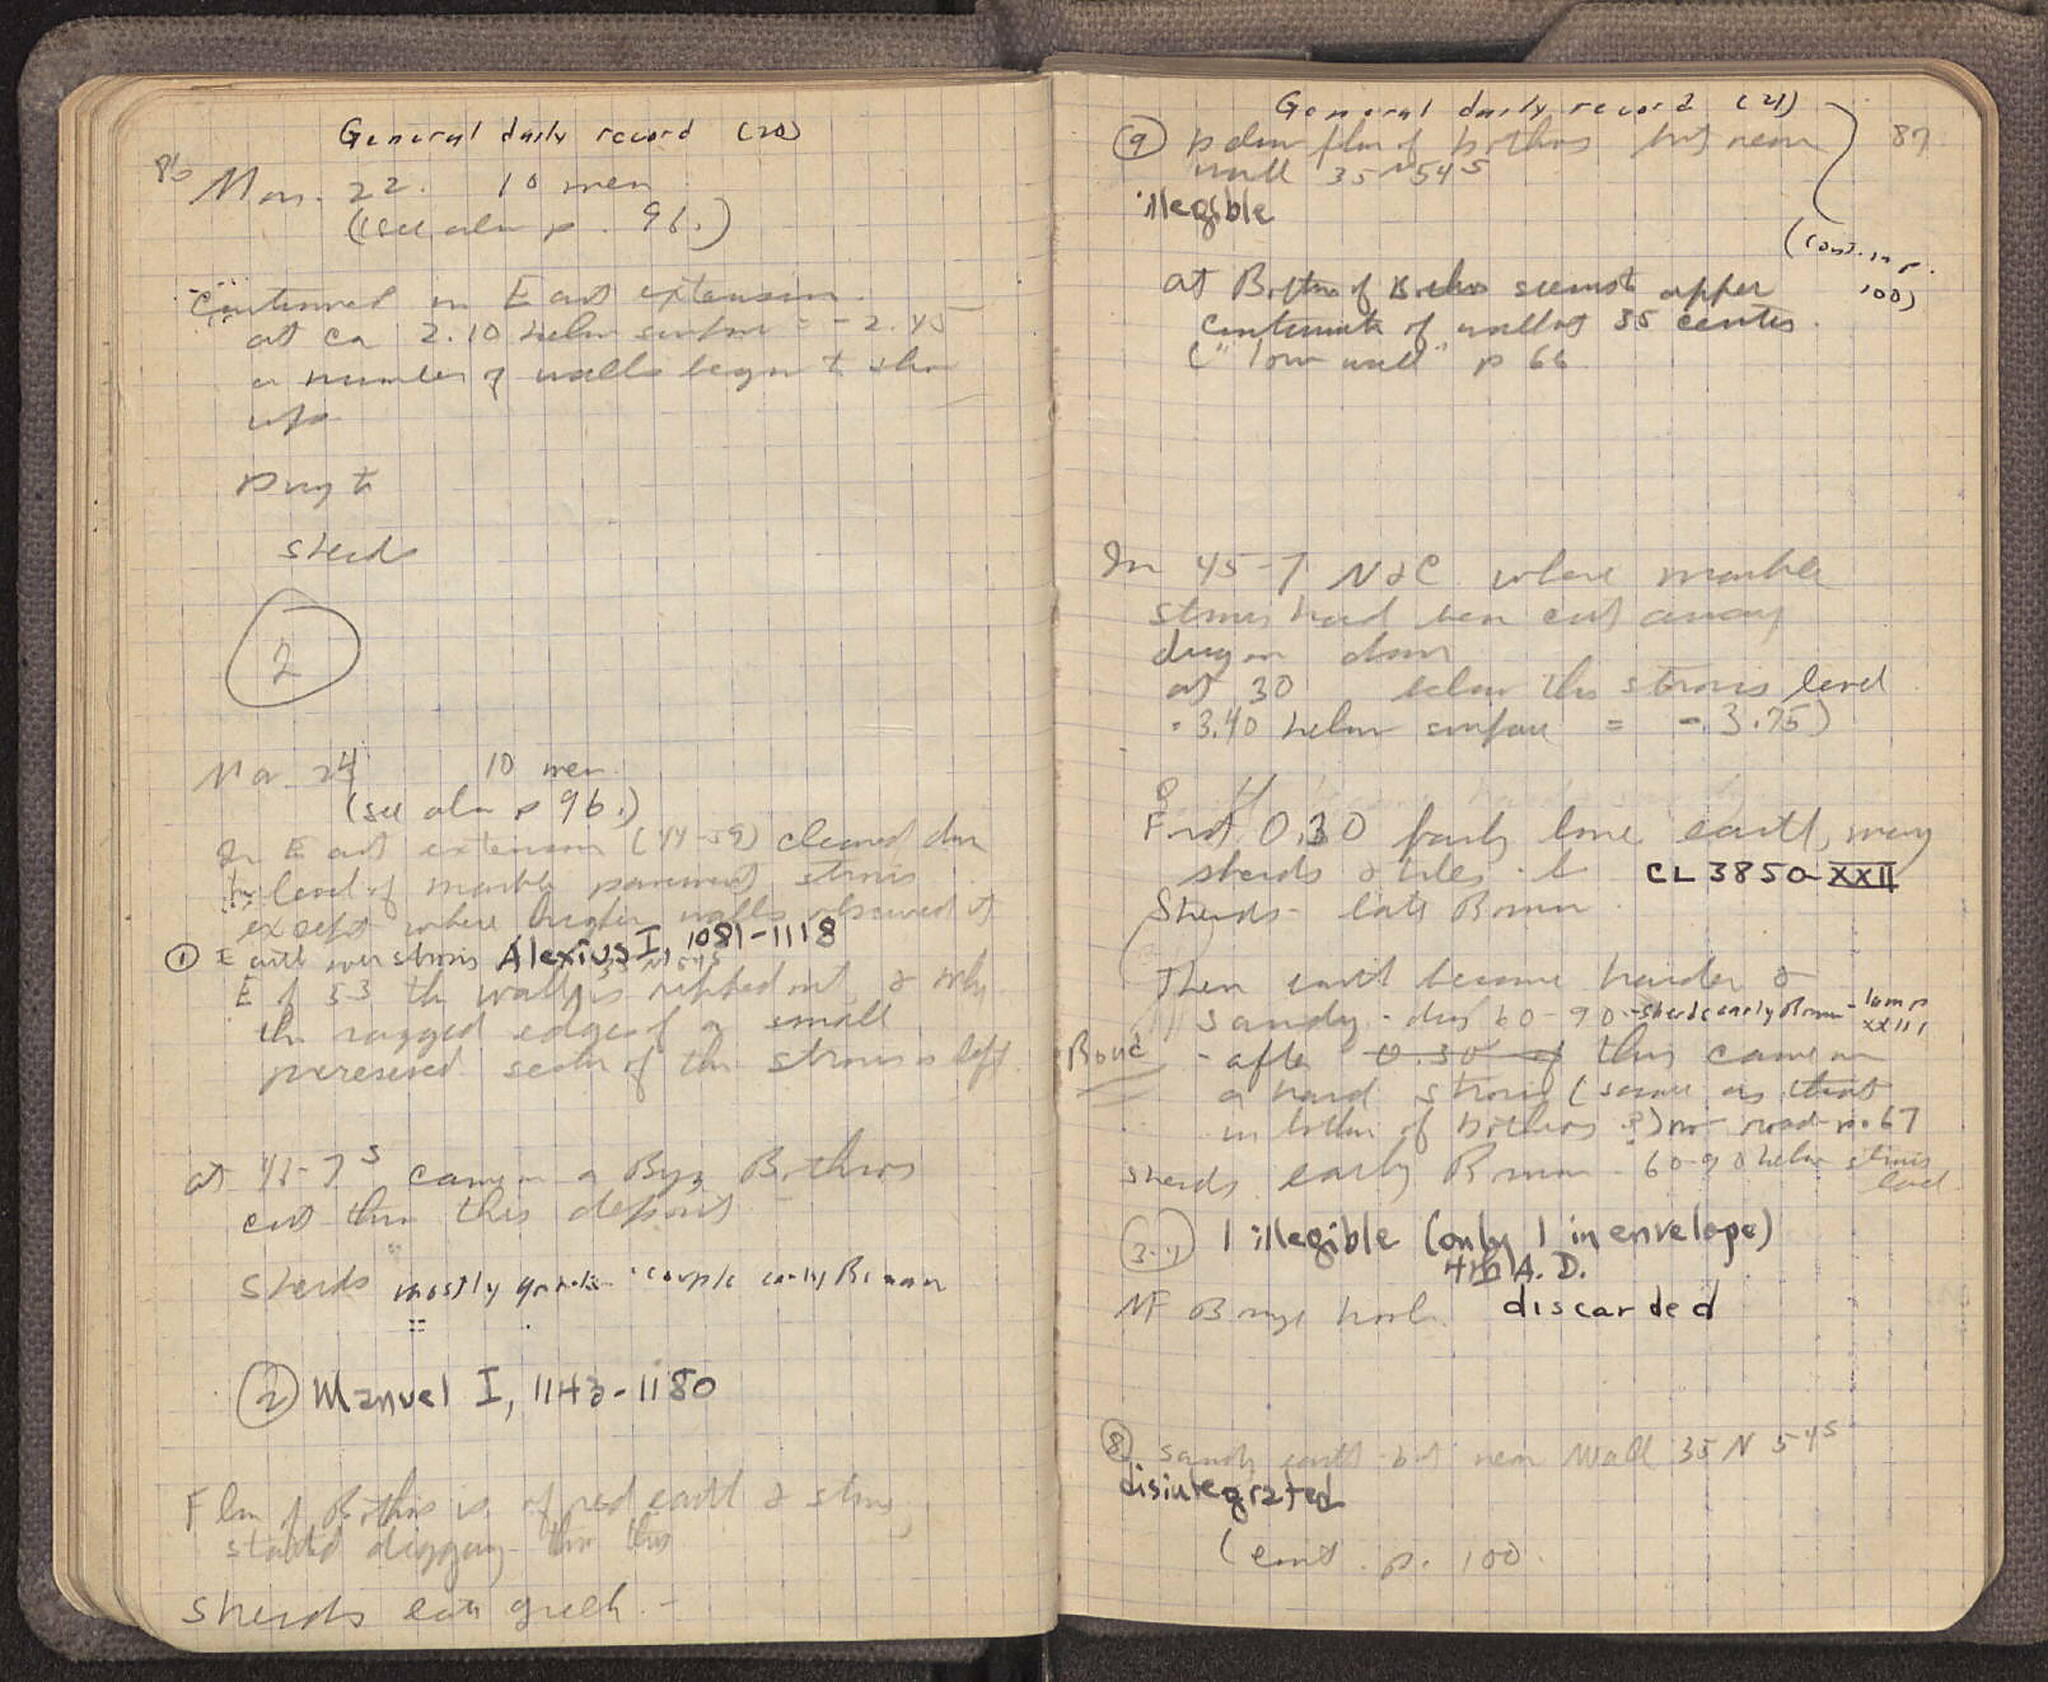 General daily record (20)
86
Mar. 22. 10 men
(see also p. 96.)
Continued in East extension.
at ca 2.10 below surface = -2.45
a number of walls begin to show
up
sherds
2
Mar 24 10 men
(see also p 96.)
In East extension (44-59) cleared down
to level of marble pavement strosis
except where higher walls observed it
① Earth over strosis Alexius I, 1081-1118
35 N 545
E of 53 the wall is ripped out, & only
the ragged edge of a small
preserved section of the strosis is left.
at 45-7 S came on a Byz Bothros
cut thru this deposit
Sherds mostly greek couple early Roman
② Manuel I, 1143-1180
Floor of Bothros is of red earth & stones,
started digging thru this
Sherds late greek -
General daily record (21)
87
⑨ below floor of bothros but near
wall 35 N 54 S
illegible
(cont. in p.
100)
at Bottom of Bothros seems to appear
continuation of wall at 35 center.
("low wall" p 66
In 45-7 N&C where marble
strosis had been cut away
dug on down
at 30 below this strosis level
= 3.40 below surface = -3.75)
First 0.30 fairly loose earth, many
sherds & tiles CL 3850-XXII
Sherds - late Roman
Then earth became harder &
sandy - dug 60-90 - sherds early Roman - lamp
XXIII
Road - after 0.30 of this came on
a hard strosis (same as that
in bottom of bothros ?) no road p. 67
sherds early Roman 60-90 below strosis
level
3-4 1 illegible (only 1 in envelope)
4th A.D.
NF Bronze hook discarded
⑧ sandy earth but near wall 35 N 54 S
disintegrated
(cont. p. 100.